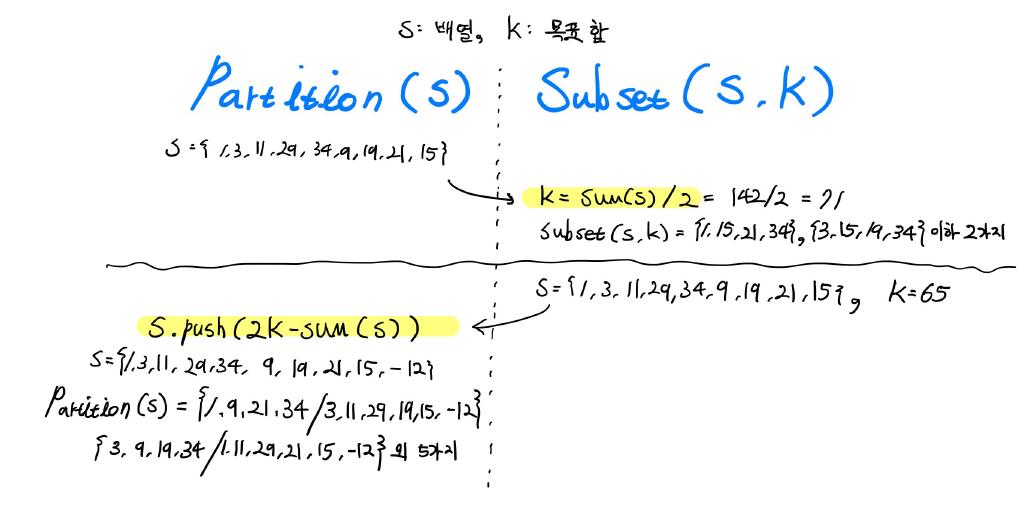 S: 배열, k: 목표합
Partition(S) Subset(S.k)
S={1,3,11,29,34,9,19,21,15}
k=sum(s)/2 = 142/2 = 71
subset(s,k) = {1,15,21,34},{3,15,19,34} 이하 2가지
S={1,3,11,29,34,9,19,21,15}, k=65
S.push(2k-sum(s))
S={1,3,11,29,34,9,19,21,15,-12}
Partition(S) = {1,9,21,34/3,11,29,19,15,-12}
{3,9,19,34/1,11,29,21,15,-12} 외 5가지